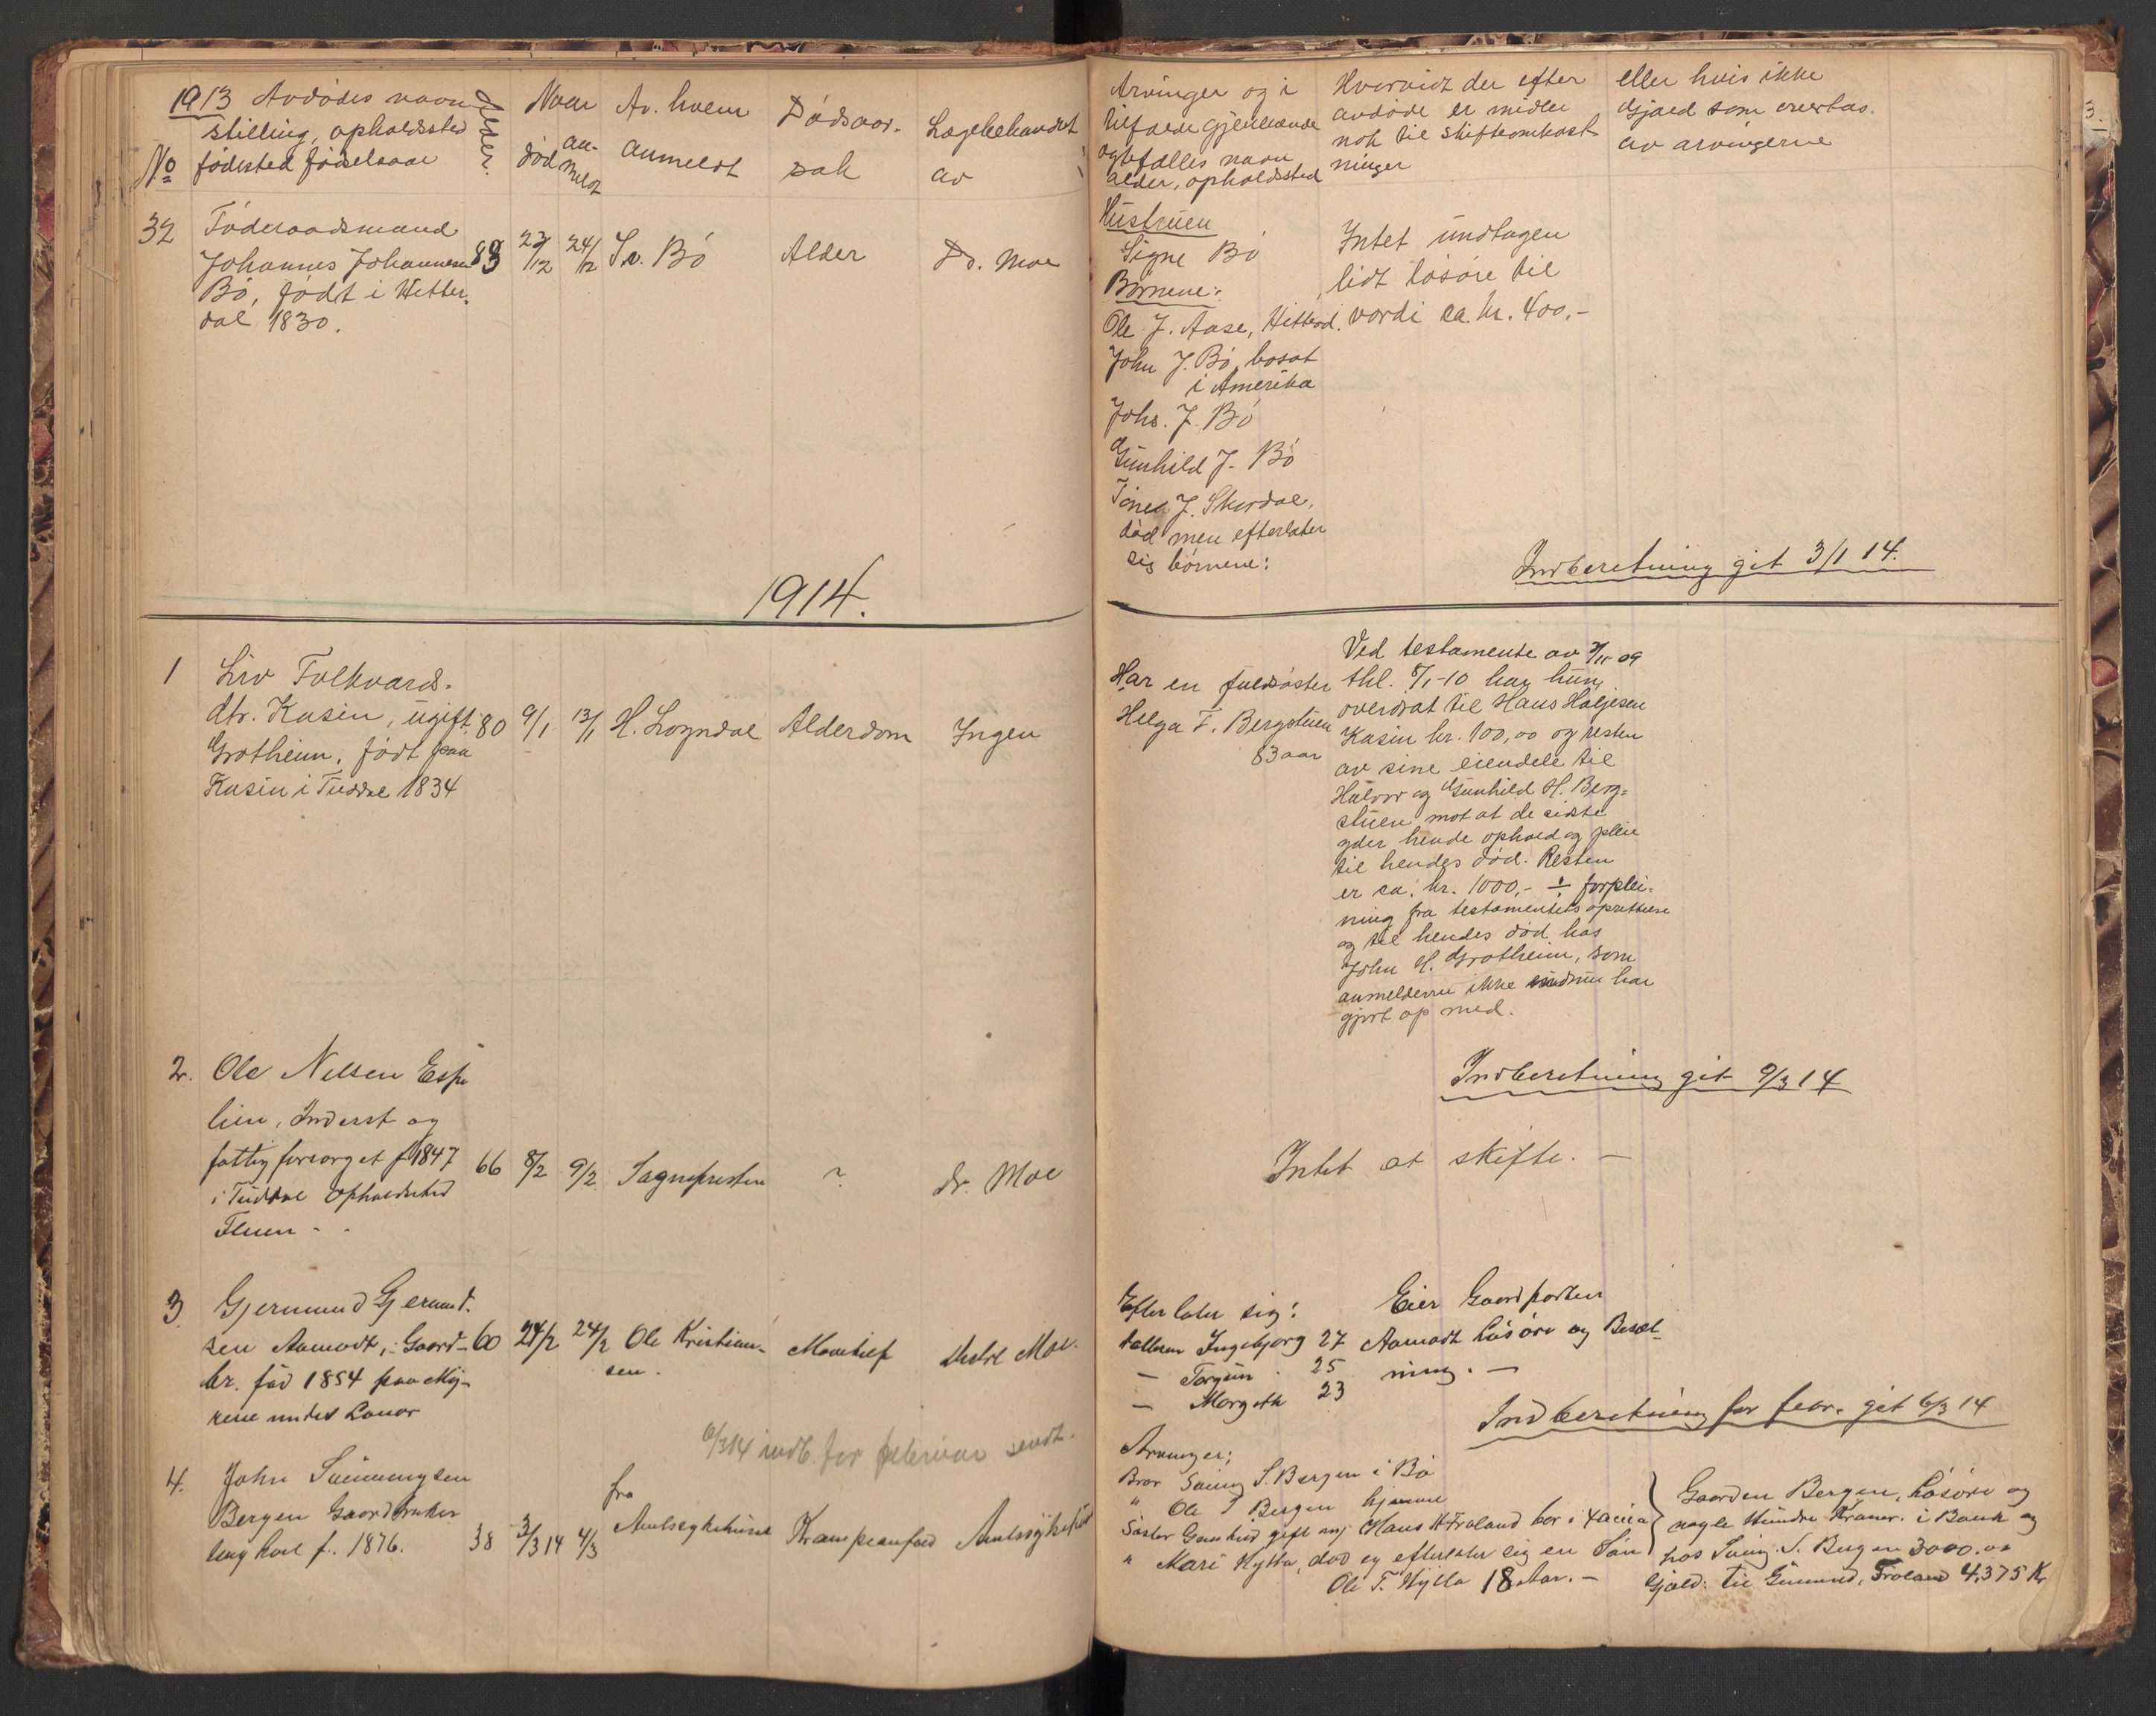 1913 Avdødes navn
stilling, opholdssted
№ fødested fødselsaar
Alder.
Naar
død
an-
meldt
Av. hvem
anmeldt
Dødsaar-
sak
Lægebehandlet
av
32 Føderaadsmand
Johannes Johannesen 83 23/12 24/12 Sv. Bö Alder Dr. Moe
Bö, født i Hitter-
dal 1830.
1914.
1 Liv Folkvards.
dtr. Kasin, ugift 80 9/1 13/1 H. Logndal Alderdom Ingen
Grotheim, født paa
Kasin i Tuddal 1834
2. Ole Nilsen Espe
lien, Inderst og
fattigforsorget f 1847 66 8/2 9/2 Sognepresten ? dr. Moe
i Tuddal opholdssted
3 Gjermund Gjermund.
sen Aamodt, Gaard- 60 24/2 24/2 Ole Kristian- Moe.
br. fød 1854 paa My- sen.
rene under
6/3 14 indb. for februar sendt.
4. John Sveinungsen
Bergen Gaardbruker fra
ungkarl f. 1876. 38 3/3 14 4/3 Amtssykehuset Krampeanfald Amtssykehuset
Arvinger og i
tilfælde gjenlevende
egtefælles navn
alder, opholdssted
Hvorvidt der efter
avdøde er midler
nok til skifteomkost-
ninger
eller hvis ikke
Gjæld som overtas
av arvingerne
Hustruen
Signe Bö
Børnene:
Ole J. Aase, Hitterd.
John J. Bö, bosat
i Amerika
Johs. J. Bö
Gunhild J. Bö
J. Skordal,
død men efterlater
sig børnene:
Intet undtagen
lidt løsøre til
værdi ca. kr. 400,-
Indberetning git 3/1 14.
Har en fuldsøster
Helga F. Bergstuen
83 aar
Ved testamente av 7/11-09
thl. 8/1-10 har hun
overdrat til Hans Haljesen
Kasin kr. 100,00 og resten
av sine eiendele til
Halvor og Gunhild H. Berg-
stuen mot at de sidste
yder hende ophold og pleie
til hendes død. Resten
er ca. kr. 1000,- ÷ forplei-
ning fra testamentets oprettelse
og til hendes død hos
John H. Grotheim, som
anmelderne ikke endnu har
gjort op med.
Indberetning git 9/3 14
Intet at skifte. —
Efterlater sig: Eier Gaardparten
datteren Ingebjørg 27 Aamodt Løsøre og Besæt-
— Torgun 25 ning. —
— Margith 23
Indberetning for febr. git 6/3 14
Arvinger;
Bror Sveinung S. Bergen i Bö
" Ole S Bergen hjemme
Søster Gunhild gift m/ Hans H Froland bor i
" Mari Hytta, død og efterlater sig en Søn
Ole T. Hytta 18 Aar. —
Gaarden Bergen, Løsøre og
nogle Hundre Kroner. i Bank og
hos Sveinung S. Bergen 3000.00
Gjæld: til Froland 4,375 Kr